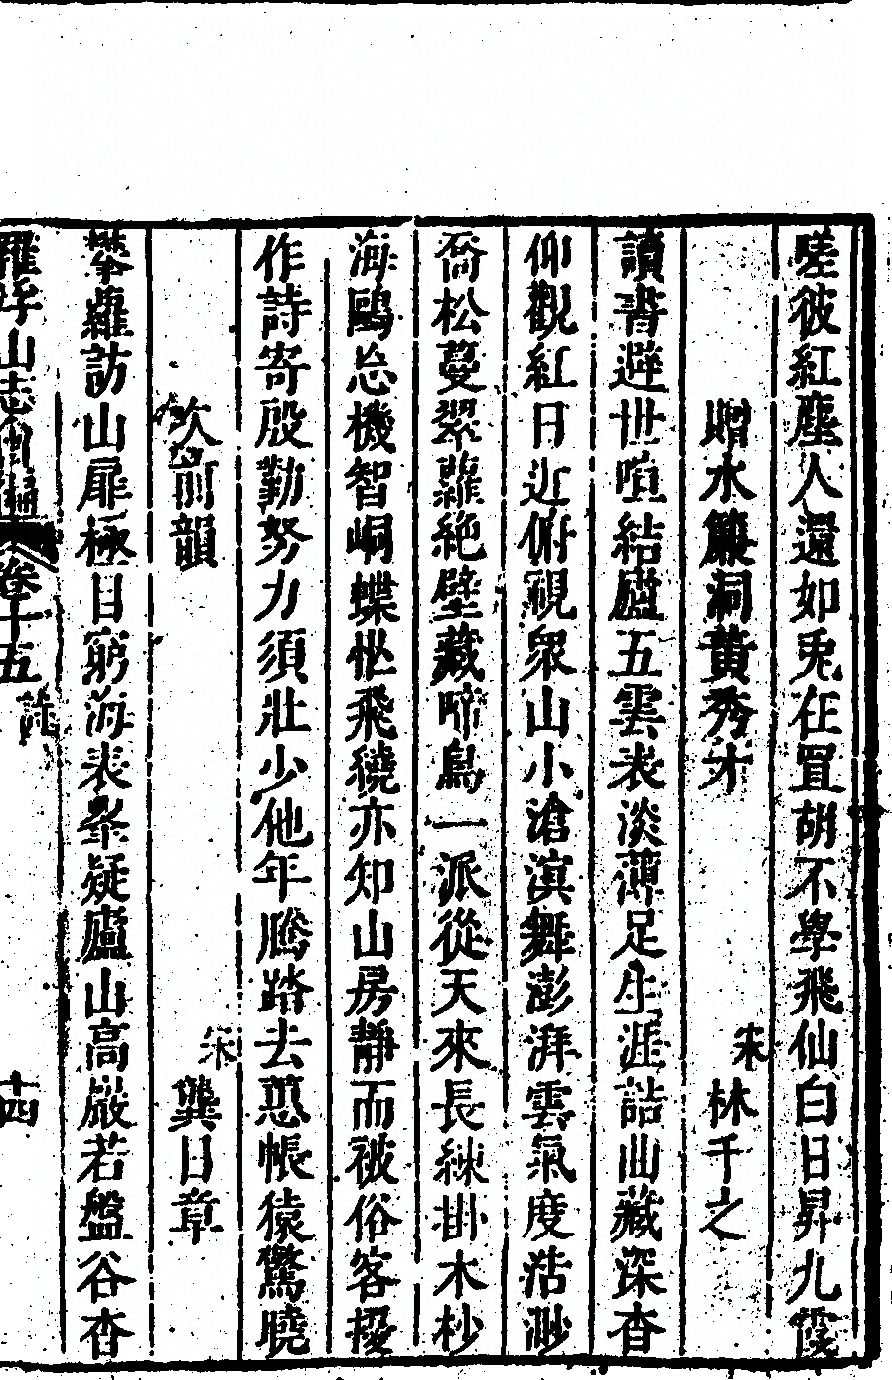 嗟彼紅塵人還如兎在罝胡不學飛仙白日昇九霞
贈水簾洞黃秀才　宋林千之
讀書避世喧結廬五雲表淡薄足生涯詰曲藏深杳
仰觀紅日近俯視衆山小滄溟舞澎湃雲氣度浩渺
喬松蔓翠蘿絶壁藏啼鳥一派從天來長練掛木杪
海鷗忘機智峒蝶怪飛繞亦知山房靜而被俗客擾
作詩寄殷勤努力須壯少他年騰踏去蕙帳猿驚曉
次前韻　宋龔日章
攀蘿訪山扉極目窮海表峯疑廬山高巖若盤谷杳
羅浮山志會編　卷十五　詩　十四